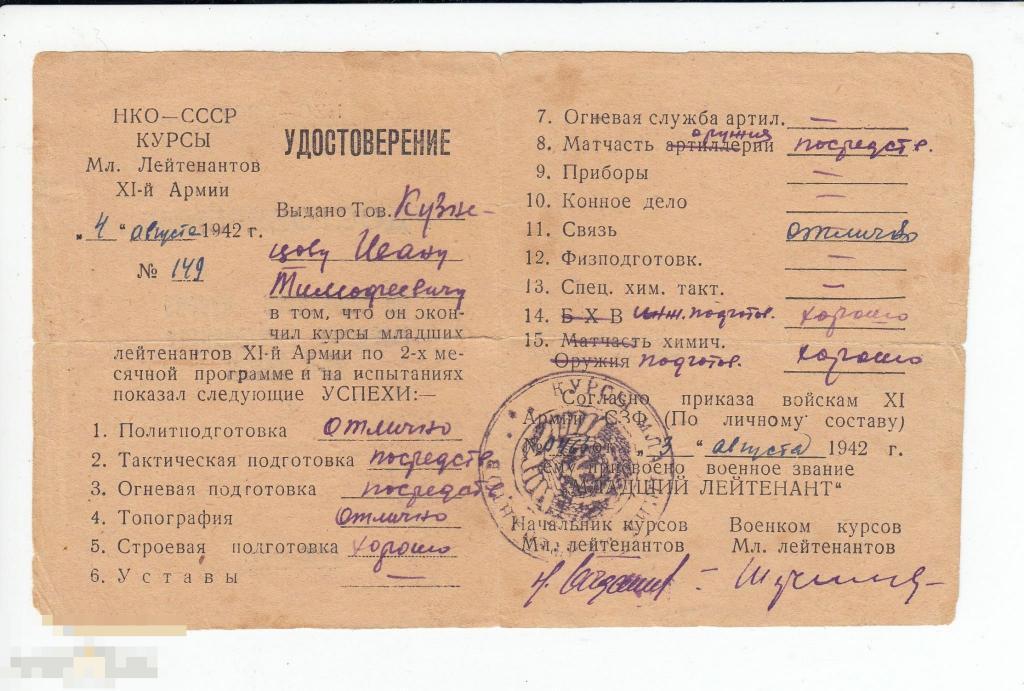 НКО—СССР
КУРСЫ
Мл. Лейтенантов
XI-й Армии
„4“ августа 1942 г.
№ 149
УДОСТОВЕРЕНИЕ
Выдано Тов. Кузне-
цову Ивану
Тимофеевичу
в том, что он окон-
чил курсы младших
лейтенантов XI-й Армии по 2-х ме-
сячной программе и на испытаниях
показал следующие УСПЕХИ:—
1. Политподготовка отлично
2. Тактическая подготовка посредств
3. Огневая подготовка посредств
4. Топография отлично
5. Строевая подготовка хорошо
6. Уставы —
7. Огневая служба артил. —
оружия
8. Матчасть артиллерии посредств.
9. Приборы —
10. Конное дело —
11. Связь отлично
12. Физподготовк. —
13. Спец. хим. такт. —
14. Б-Х В инж. подготов. хорошо
15. Матчасть химич.
Оружия подготов. хорошо
Согласно приказа войскам XI
Армии СЗФ (По личному составу)
№ от „3“ августа 1942 г.
ему присвоено военное звание
„МЛАДШИЙ ЛЕЙТЕНАНТ“
Начальник курсов
Мл. лейтенантов
Военком курсов
Мл. лейтенантов
КУРСЫ МЛА